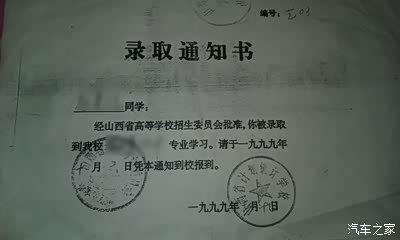 编号:
录取通知书
同学:
经山西省高等学校招生委员会批准,你被录取
到我校 专业学习。请于一九九九年
月 日凭本通知到校报到。
一九九九年 月 日
汽车之家